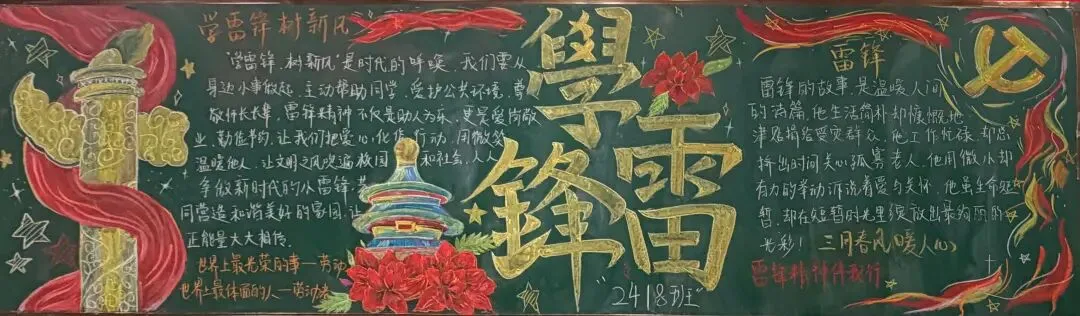 学雷锋树新风
"学雷锋 树新风"是时代的呼唤，我们需从
身边小事做起，主动帮助同学，爱护公共环境，尊
敬师长长辈，雷锋精神不仅是助人为乐，更是爱岗敬
业，勤俭节约，让我们把爱心化作行动，用微笑
温暖他人，让文明之风吹遍校园和社会，人人
争做新时代的小雷锋，共
同营造和谐美好的家园，让
正能量大大相传。
世界上最光荣的事—劳动
世界上最体面的人—劳动者
學雷
鋒
"2418班"
雷锋
雷锋的故事，是温暖人间
的诗篇，他生活简朴却慷慨地
津贴捐给受灾群众，他工作忙碌却总
挤出时间关心孤寡老人，他用微小却
有力的举动诉说着爱与关怀，他虽生命短
暂，却在短暂时光里绽放出最绚丽的
光彩！三月春风暖人心
雷锋精神伴我行